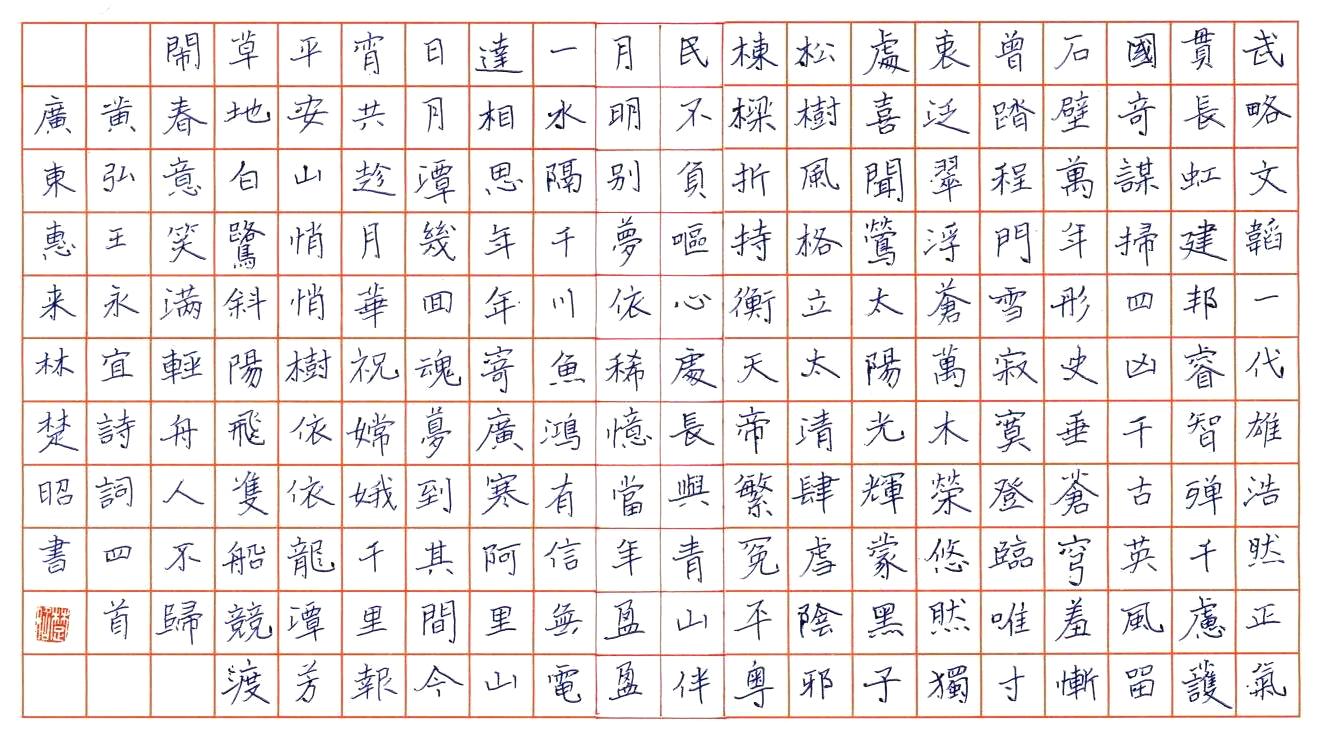 武略文韜一代雄浩然正氣
貫長虹建邦睿智殫千慮護
國奇謀掃四凶千古英風留
石壁萬年形史垂蒼穹羞慚
曾踏程門雪寂寞登臨唯寸
衷泛翠浮蒼萬木榮悠然獨
處喜聞鶯太陽光輝蒙黑子
松樹風格立太清肆虐陰邪
棟樑折持衡天帝繁冤平粵
民不負嘔心處長與青山伴
月明别夢依稀憶當年盈盈
一水隔千川魚鴻有信無電
達相思年年寄廣寒阿里山
日月潭幾回魂夢到其間今
宵共趁月華祝嫦娥千里報
平安山悄悄樹依依龍潭芳
草地白鷺斜陽飛隻船競渡
鬧春意笑满輕舟人不歸
黄弘王永宜詩詞四首
廣東惠来林楚昭書